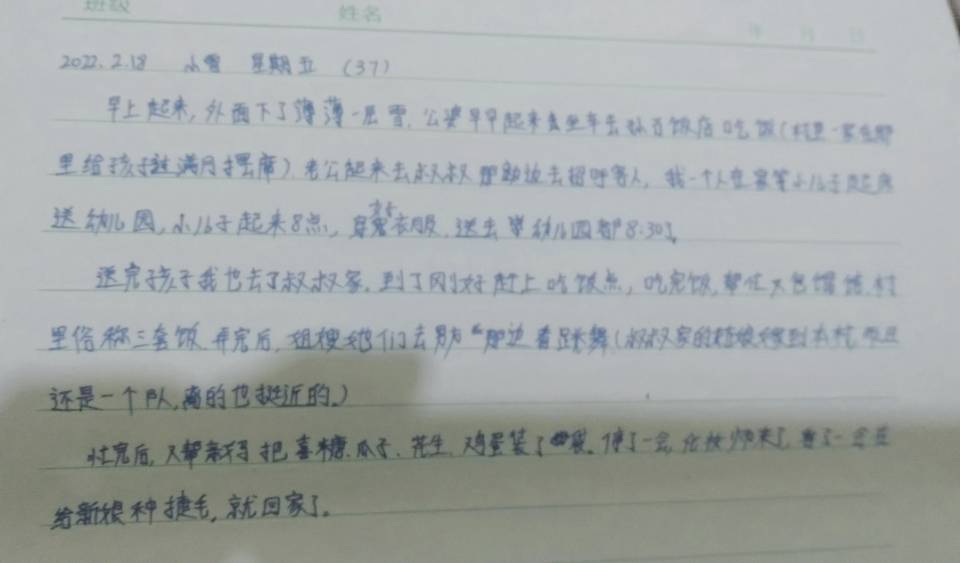 班级 姓名 年 月 日
2022.2.18 小雪 星期五 (37)
早上起来,外面下了薄薄一层雪,公婆早早起来去坐车去 饭店吃饭(村里一家在那
里给孩子过满月摆席)老公起来去叔叔那助边去招呼客人,我一个人在家等小儿子起床
送幼儿园,小儿子起来8点,穿衣服,送去 幼儿园都8:30了
送完孩子我也去了叔叔家,到了刚好赶上吃饭点,吃完饭,帮忙又包馄饨,村
里俗称三套饭 弄完后,姐嫂她们去 那边看跳舞(叔叔家的 娘 到本村,而且
还是一个队,离的也挺近的。)
忙完后,又帮 把喜糖、瓜子、花生、鸡蛋装了 袋。停了一会,化妆师来了,看了一会在
给新娘种捷毛,就回家了。